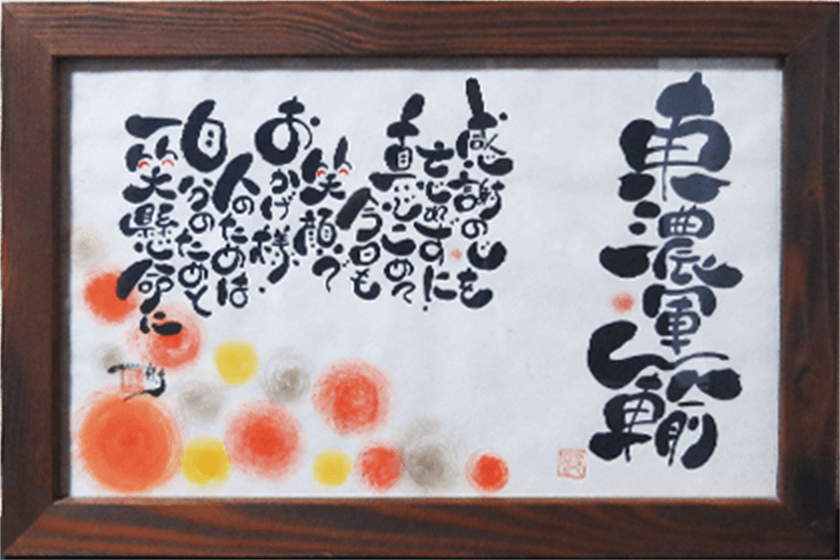 東濃運輸
感謝の心を
忘れずに
真心こめて
今日も
笑顔で
おかげ様
人のためは
自分のためと
一笑懸命に